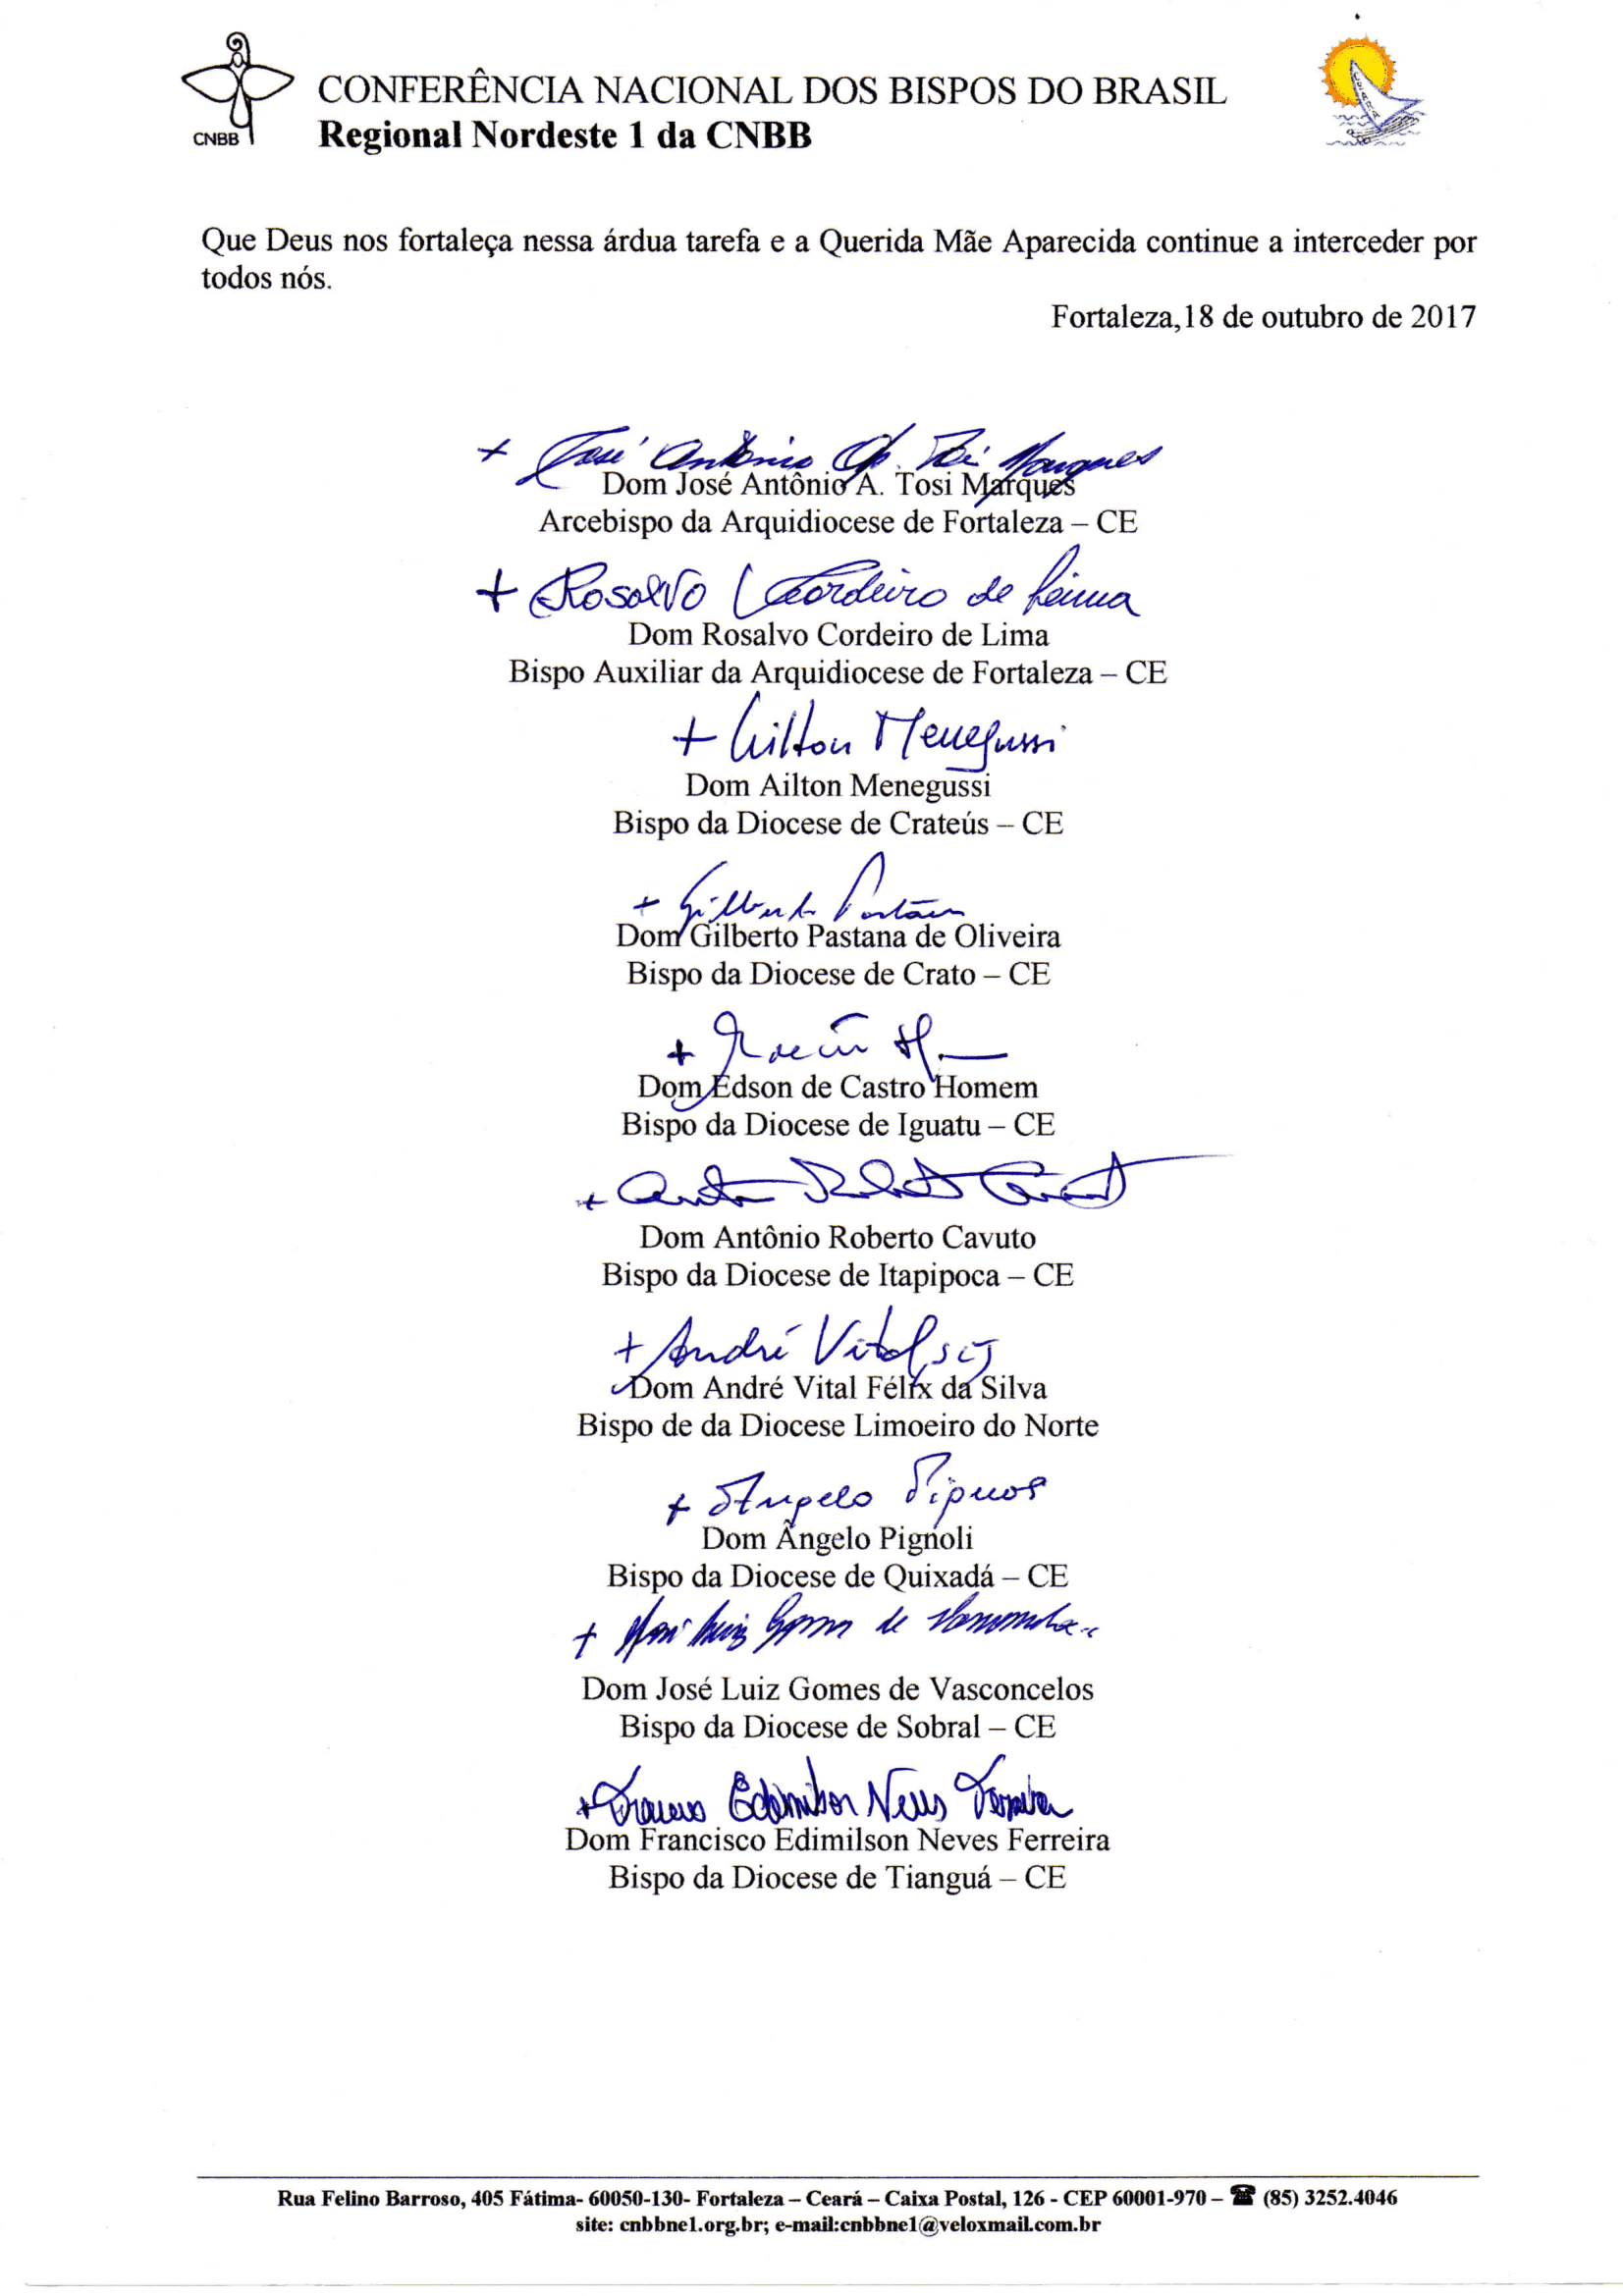 CNBB
CONFERÊNCIA NACIONAL DOS BISPOS DO BRASIL
Regional Nordeste 1 da CNBB
Que Deus nos fortaleça nessa árdua tarefa e a Querida Mãe Aparecida continue a interceder por
todos nós.
Fortaleza,18 de outubro de 2017
+ José Antônio Ap. Tosi Marques
Dom José Antônio A. Tosi Marques
Arcebispo da Arquidiocese de Fortaleza – CE
+ Rosalvo Cordeiro de Lima
Dom Rosalvo Cordeiro de Lima
Bispo Auxiliar da Arquidiocese de Fortaleza – CE
+ Ailton Menegussi
Dom Ailton Menegussi
Bispo da Diocese de Crateús – CE
+ Gilberto Pastana
Dom Gilberto Pastana de Oliveira
Bispo da Diocese de Crato – CE
+
Dom Edson de Castro Homem
Bispo da Diocese de Iguatu – CE
+ Antônio Roberto Cavuto
Dom Antônio Roberto Cavuto
Bispo da Diocese de Itapipoca – CE
+ André Vital, scj
Dom André Vital Félix da Silva
Bispo de da Diocese Limoeiro do Norte
+ Angelo Pignoli
Dom Ângelo Pignoli
Bispo da Diocese de Quixadá – CE
+ José Luiz Gomes de Vasconcelos
Dom José Luiz Gomes de Vasconcelos
Bispo da Diocese de Sobral – CE
+ Francisco Edimilson Neves Ferreira
Dom Francisco Edimilson Neves Ferreira
Bispo da Diocese de Tianguá – CE
Rua Felino Barroso, 405 Fátima- 60050-130- Fortaleza – Ceará – Caixa Postal, 126 - CEP 60001-970 – ☎ (85) 3252.4046
site: cnbbne1.org.br; e-mail:cnbbne1@veloxmail.com.br